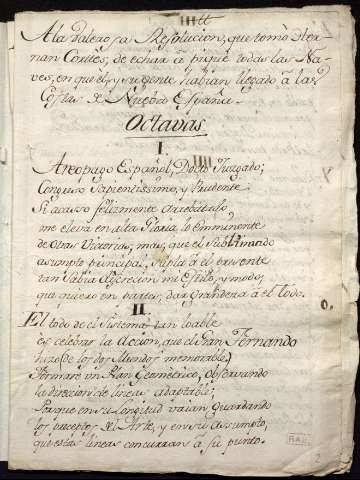 A la Valerosa Resolucion, que tomò Her-
nan Cortès, de echar à pique todas las Na-
ves, en que èl, y su gente habian llegado à las
Costas de Nueva España.
Octavas
I.
Areopago Español, Docto Juzgado;
Congreso Sapientissimo, y Prudente
Si acaso felizmente arrebatado
me eleva en alta Gloria, lo emminente
de otras Victorias, mas, que el Sublimado
asumpto principal, Supla el
tan Sabia discrecion mi Estilo, y modo,
que quiero en partes, dar Grandeza à el todo.
II.
El todo de el Sistema tan loable
es celebrar la Accion, que el Gran Fernando
hizo (de los dos Mundos memorable)
Formarè un Plan Geometrico, observando
la direccion de lineas adaptable;
Porque en su longitud vaian guardando
los preceptos de el Arte, y en su assumpto,
que estas lineas concurran à su punto.
RAE
2